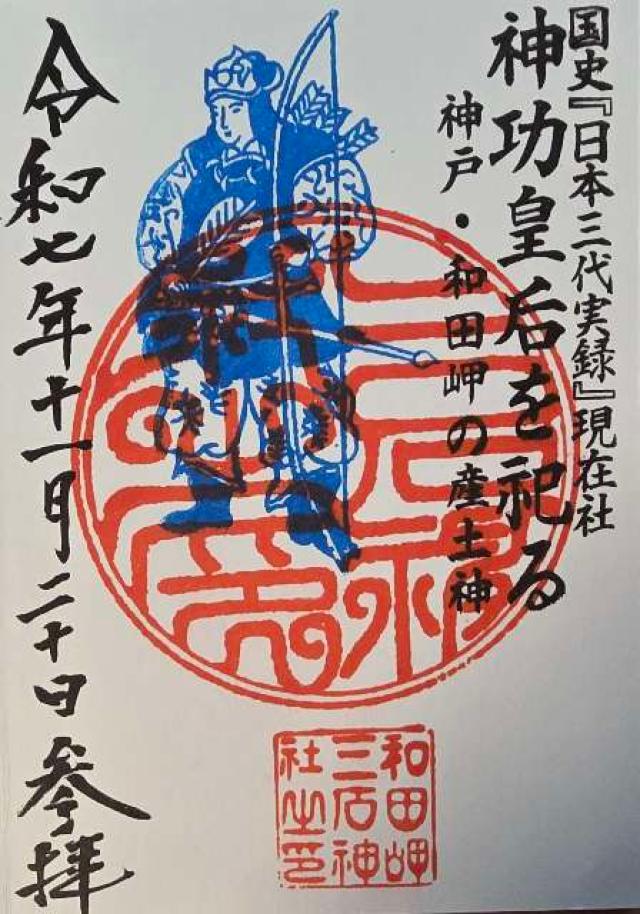 国史『日本三代実録』現在社
神功皇后を祀る
神戸・和田岬の産土神
三石神社之印
令和七年十一月二十日参拝
和田岬
三石神
社之印